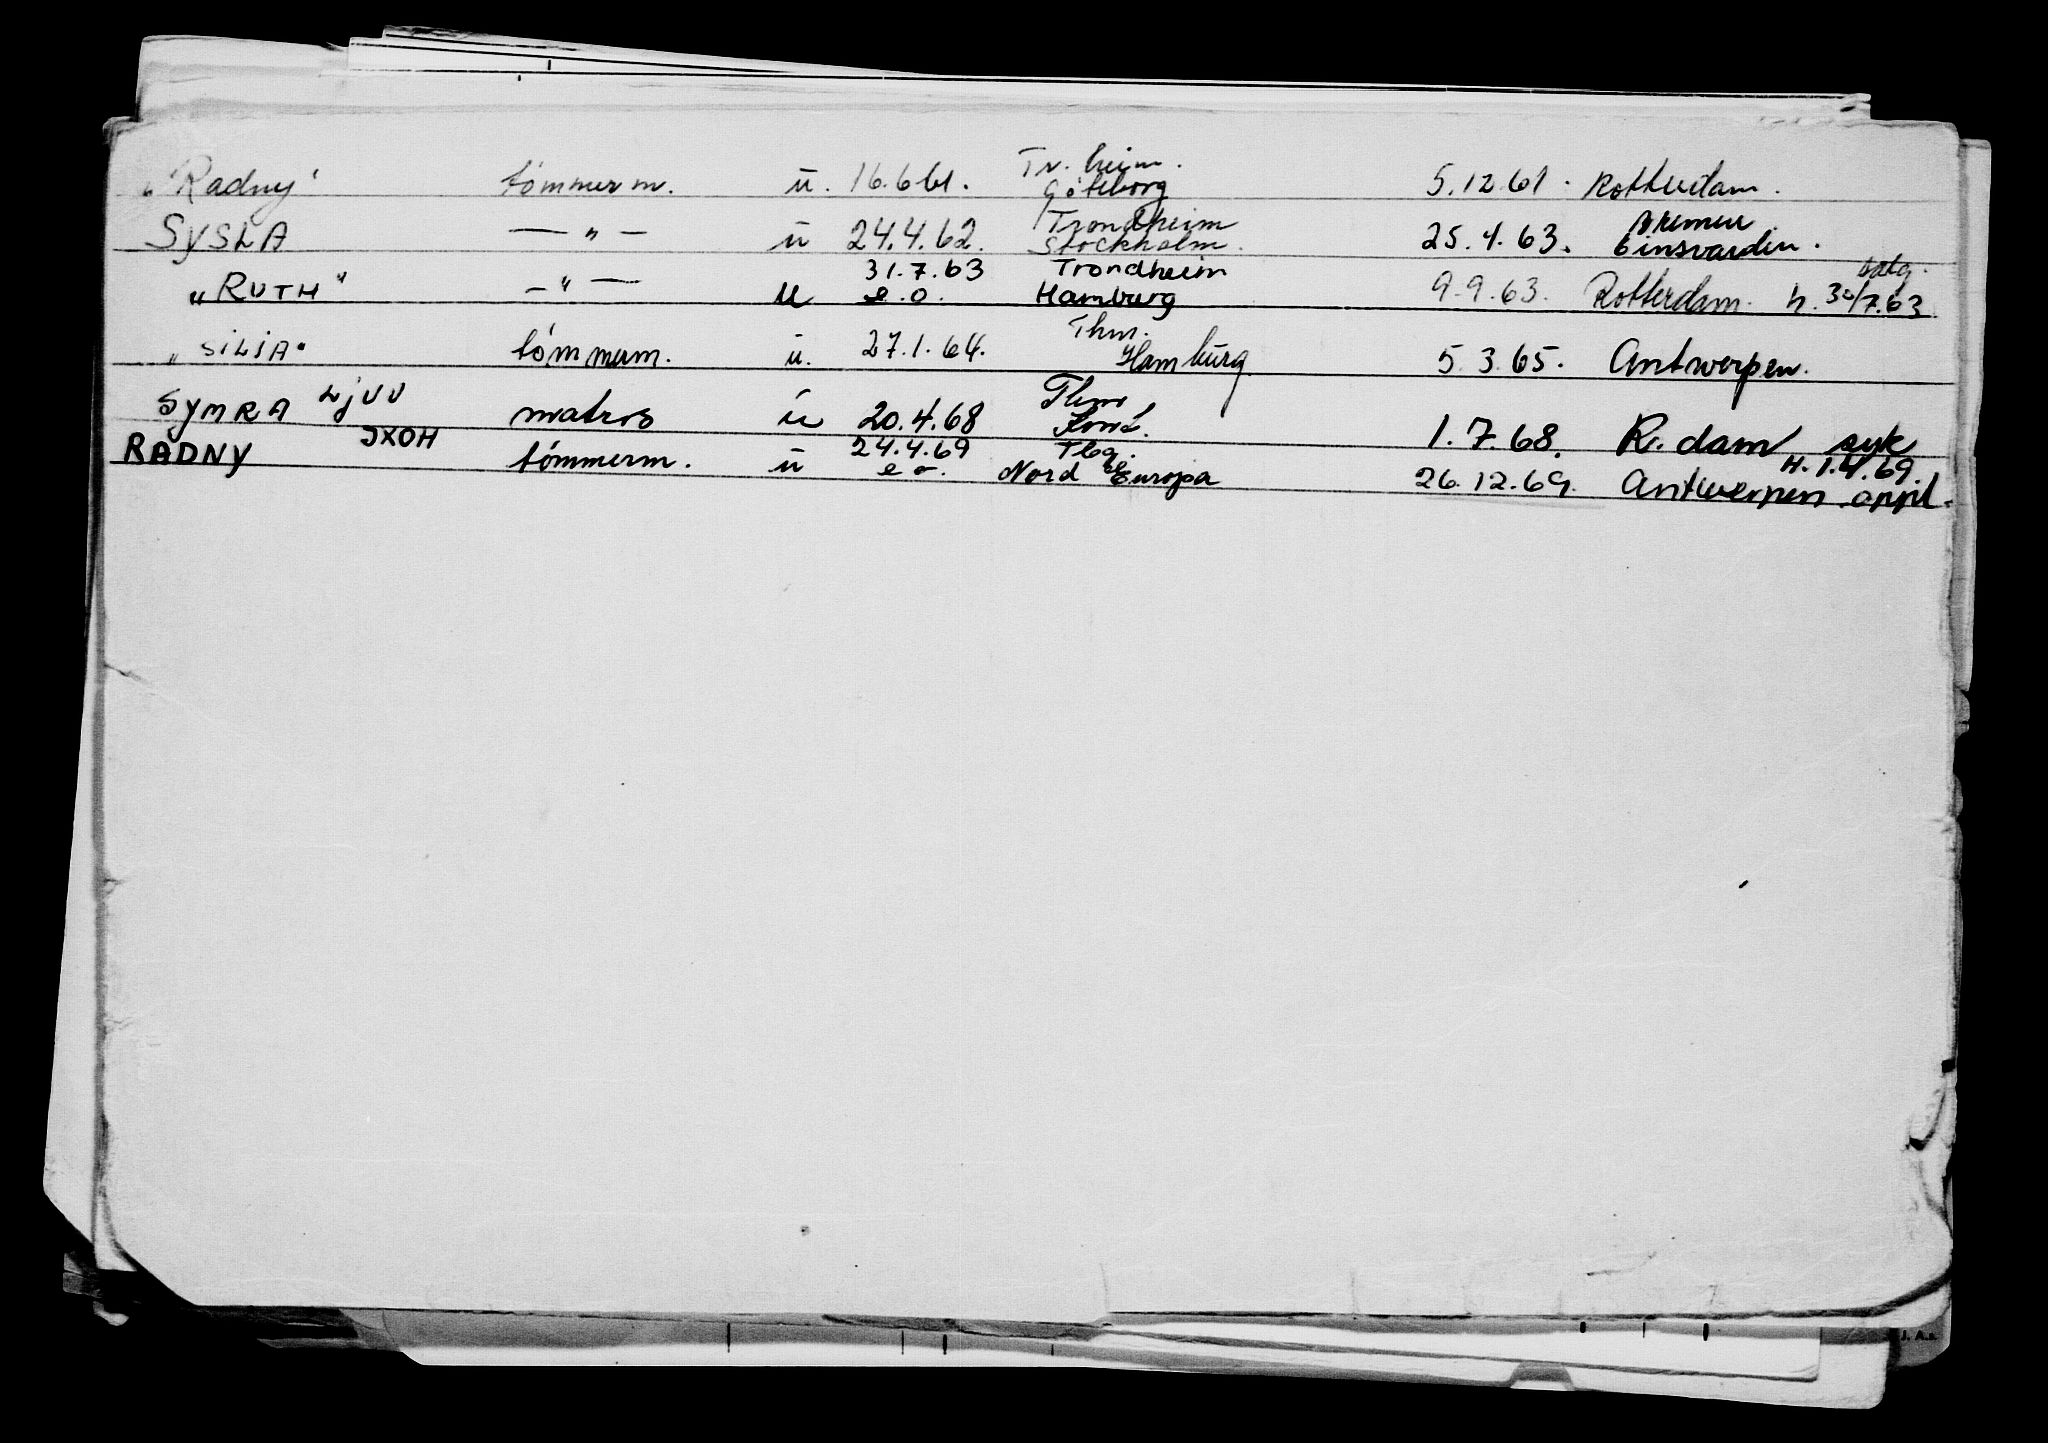 "Radny" tømmerm. u. 16.6.61. Tr.heim. Göteborg 5.12.61. Rotterdam.
SYSLA — " — u 24.4.62. Trondheim Stockholm. 25.4.63. Bremen Einsvarden.
"RUTH" — " — u 31.7.63 e.o. Trondheim Hamburg 9.9.63. Rotterdam. h. 30/7.63 salg.
"SILJA" tømmerm. u. 27.1.64. Thm. Hamburg 5.3.65. Antwerpen.
SYMRA LJVV matros u 20.4.68 Thm 1.7.68. R.dam syk
RADNY JXOH tømmerm. u 24.4.69 e o. Tbg. Nord Europa 26.12.69. Antwerpen oppl. H. 1.4.69.
J. A.s.